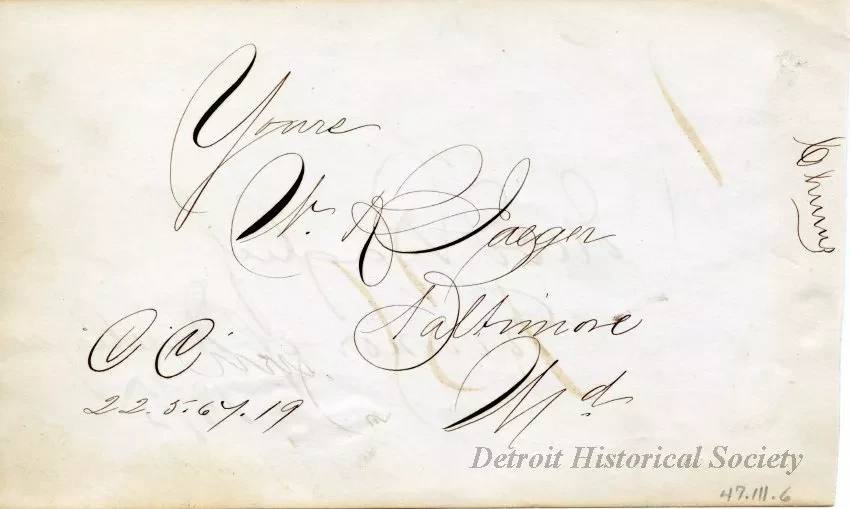 Yours
W. A. Jaeger
Baltimore
Md
"C" "C"
22.5.67.19
Chums
Detroit Historical Society
47.111.6